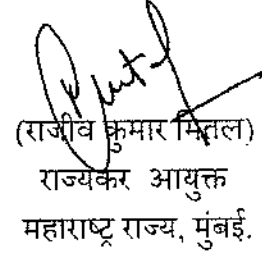 (राजीव कुमार मितल)
राज्यकर आयुक्त
महाराष्ट्र राज्य, मुंबई.